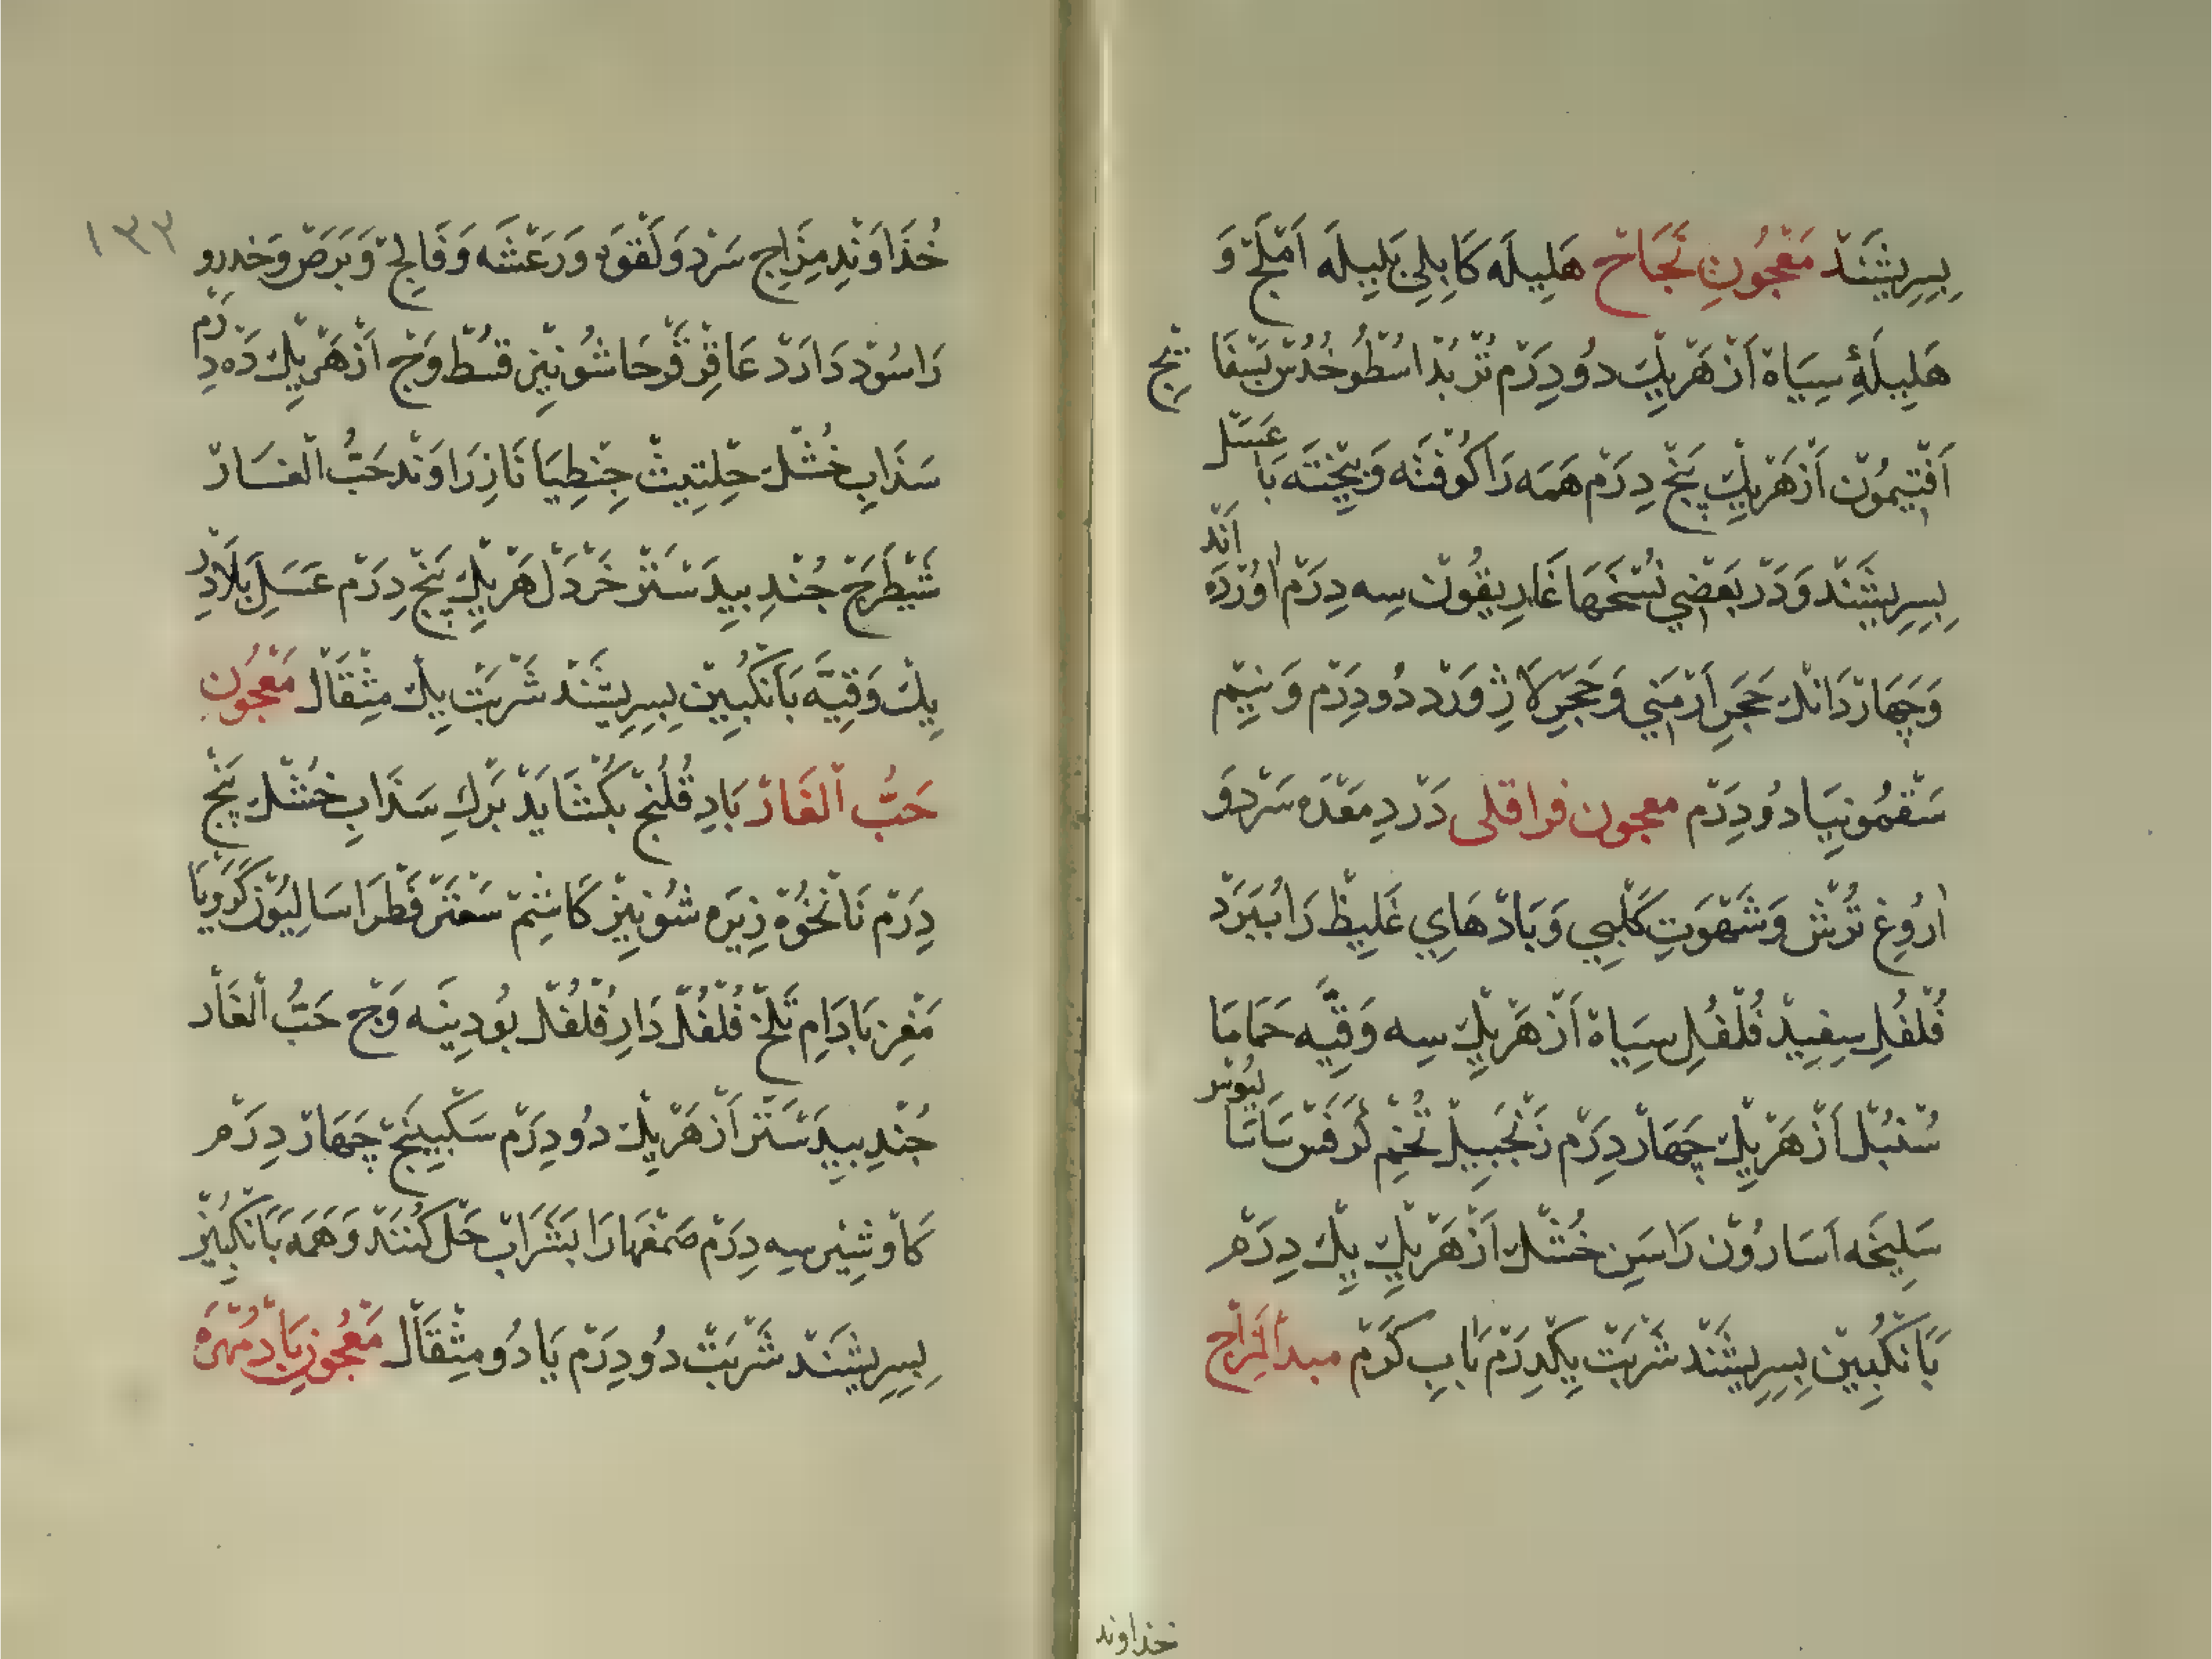 بِسِرِيشَنَدْ مَعْجُونِ نَجَاحْ هَلِيلَه كَابِلِى بَلِيلَه اَمْلَجْ وَ
هَلِيلَهٔ سِيَاهْ اَزْ هَرْيِكْ دُو دِرَمْ تُرْبُدْ اسْطُوخُدُسْ بَسْفَايِجْ
اَفْتِيمُونْ اَزْ هَرْيِكْ پَنْجْ دِرَمْ هَمَه رَا كُوفْتَه وَ بِيخْتَه بَا عَسَلْ
بِسِرِيشَنَدْ وَدَرْ بَعْضِي نُسْخَهَا غَارِيقُونْ سِه دِرَمْ اوُرْدَه اَنْدْ
وَچَهَارْ دَانْك حَجَرِ اَرْمَنِي وَحَجَرِ لَازْوَرْد دُو دِرَمْ وَنِيمْ
سَقْمُونِيَا دُو دِرَمْ معجون فراقلى دَرْدِ مَعْدَه سَرْد وَ
اُرُوغِ تُرُشْ وَشَهْوَتِ كَلْبِي وَبَادْهَايِ غَلِيظْ رَا بُبَرَدْ
فُلْفُلِ سِفِيدْ فُلْفُلِ سِيَاهْ اَزْ هَرْيِكْ سِه وَقِيَّه حَمَامَا
سُنْبُلْ اَزْ هَرْيِكْ چَهَارْ دِرَمْ زَنْجَبِيلْ تُخْمِ كَرَفْسْ سَاسَالِيُوسْ
سَلِيخَه اَسَارُوْن رَاسَنِ خُشْكْ اَزْ هَرْيِكْ يِكْ دِرَمْ
بَانْكُبِينْ بِسِرِيشَنَدْ شَرْبَتْ يِكْدِرَمْ بَابِ كَرَمْ مبدالمزاج
خداوند
١٣٣
خُذَاوَنْدِ مِزَاجِ سَرْد وَلَقْوَه وَرَعْشَه وَفَالِجْ وَبَرَصْ وَخدر و
رَاسُوْد دَارَدْ عَاقِرْ قَرْحَا شُونِيزْ قُسْطْ وَجْ اَزْ هَرْيِكْ دَه دِرَمْ
سَذَابِ خُشْكْ حِلْتِيثْ جِنْطِيَانَا زِرَاوَنْد حَبُّ الْغَارْ
شَيْطَرَجْ جُنْدِ بِيدَسْتَرْ خَرْدَلْ هَرْيِكْ پَنْجْ دِرَمْ عَسَلِ بَلَادِرْ
يِكْ وَقِيَّه بَانْكُبِينْ بِسِرِيشَنَدْ شَرْبَتْ يِكْ مِثْقَالْ مَعْجُونِ
حَبُّ الْغَارْ بَادِ قُلُنْجْ بكُشَايَدْ بَرْكِ سَذَابِ خُشْكْ پَنْجْ
دِرَمْ نَانْخُوَهْ زِيرَه شُونِيزْ كَاشِمْ سَعْتَرْ فَطْرَاسَالِيُوْن كَرَوِيَا
مَغْزِ بَادَامِ تَلْخْ فُلْفُلْ دَارِفُلْفُلْ بُودِينَه وَجْ حَبُّ الْغَارْ
جُنْدِ بِيدَسْتَرْ اَزْ هَرْيِكْ دُو دِرَمْ سَكْبِينَجْ چَهَارْ دِرَمْ
كَاوْشِيْر سِه دِرَمْ صَمْغهَا رَا بَشَرَابْ حَلْ كُنَنَدْ وَهَمَه بَانْكُبِينْ
بِسِرِيشَنَدْ شَرْبَتْ دُو دِرَمْ يَا دُو مِثْقَالْ مَعْجُونِ بَادْمُهْرَه